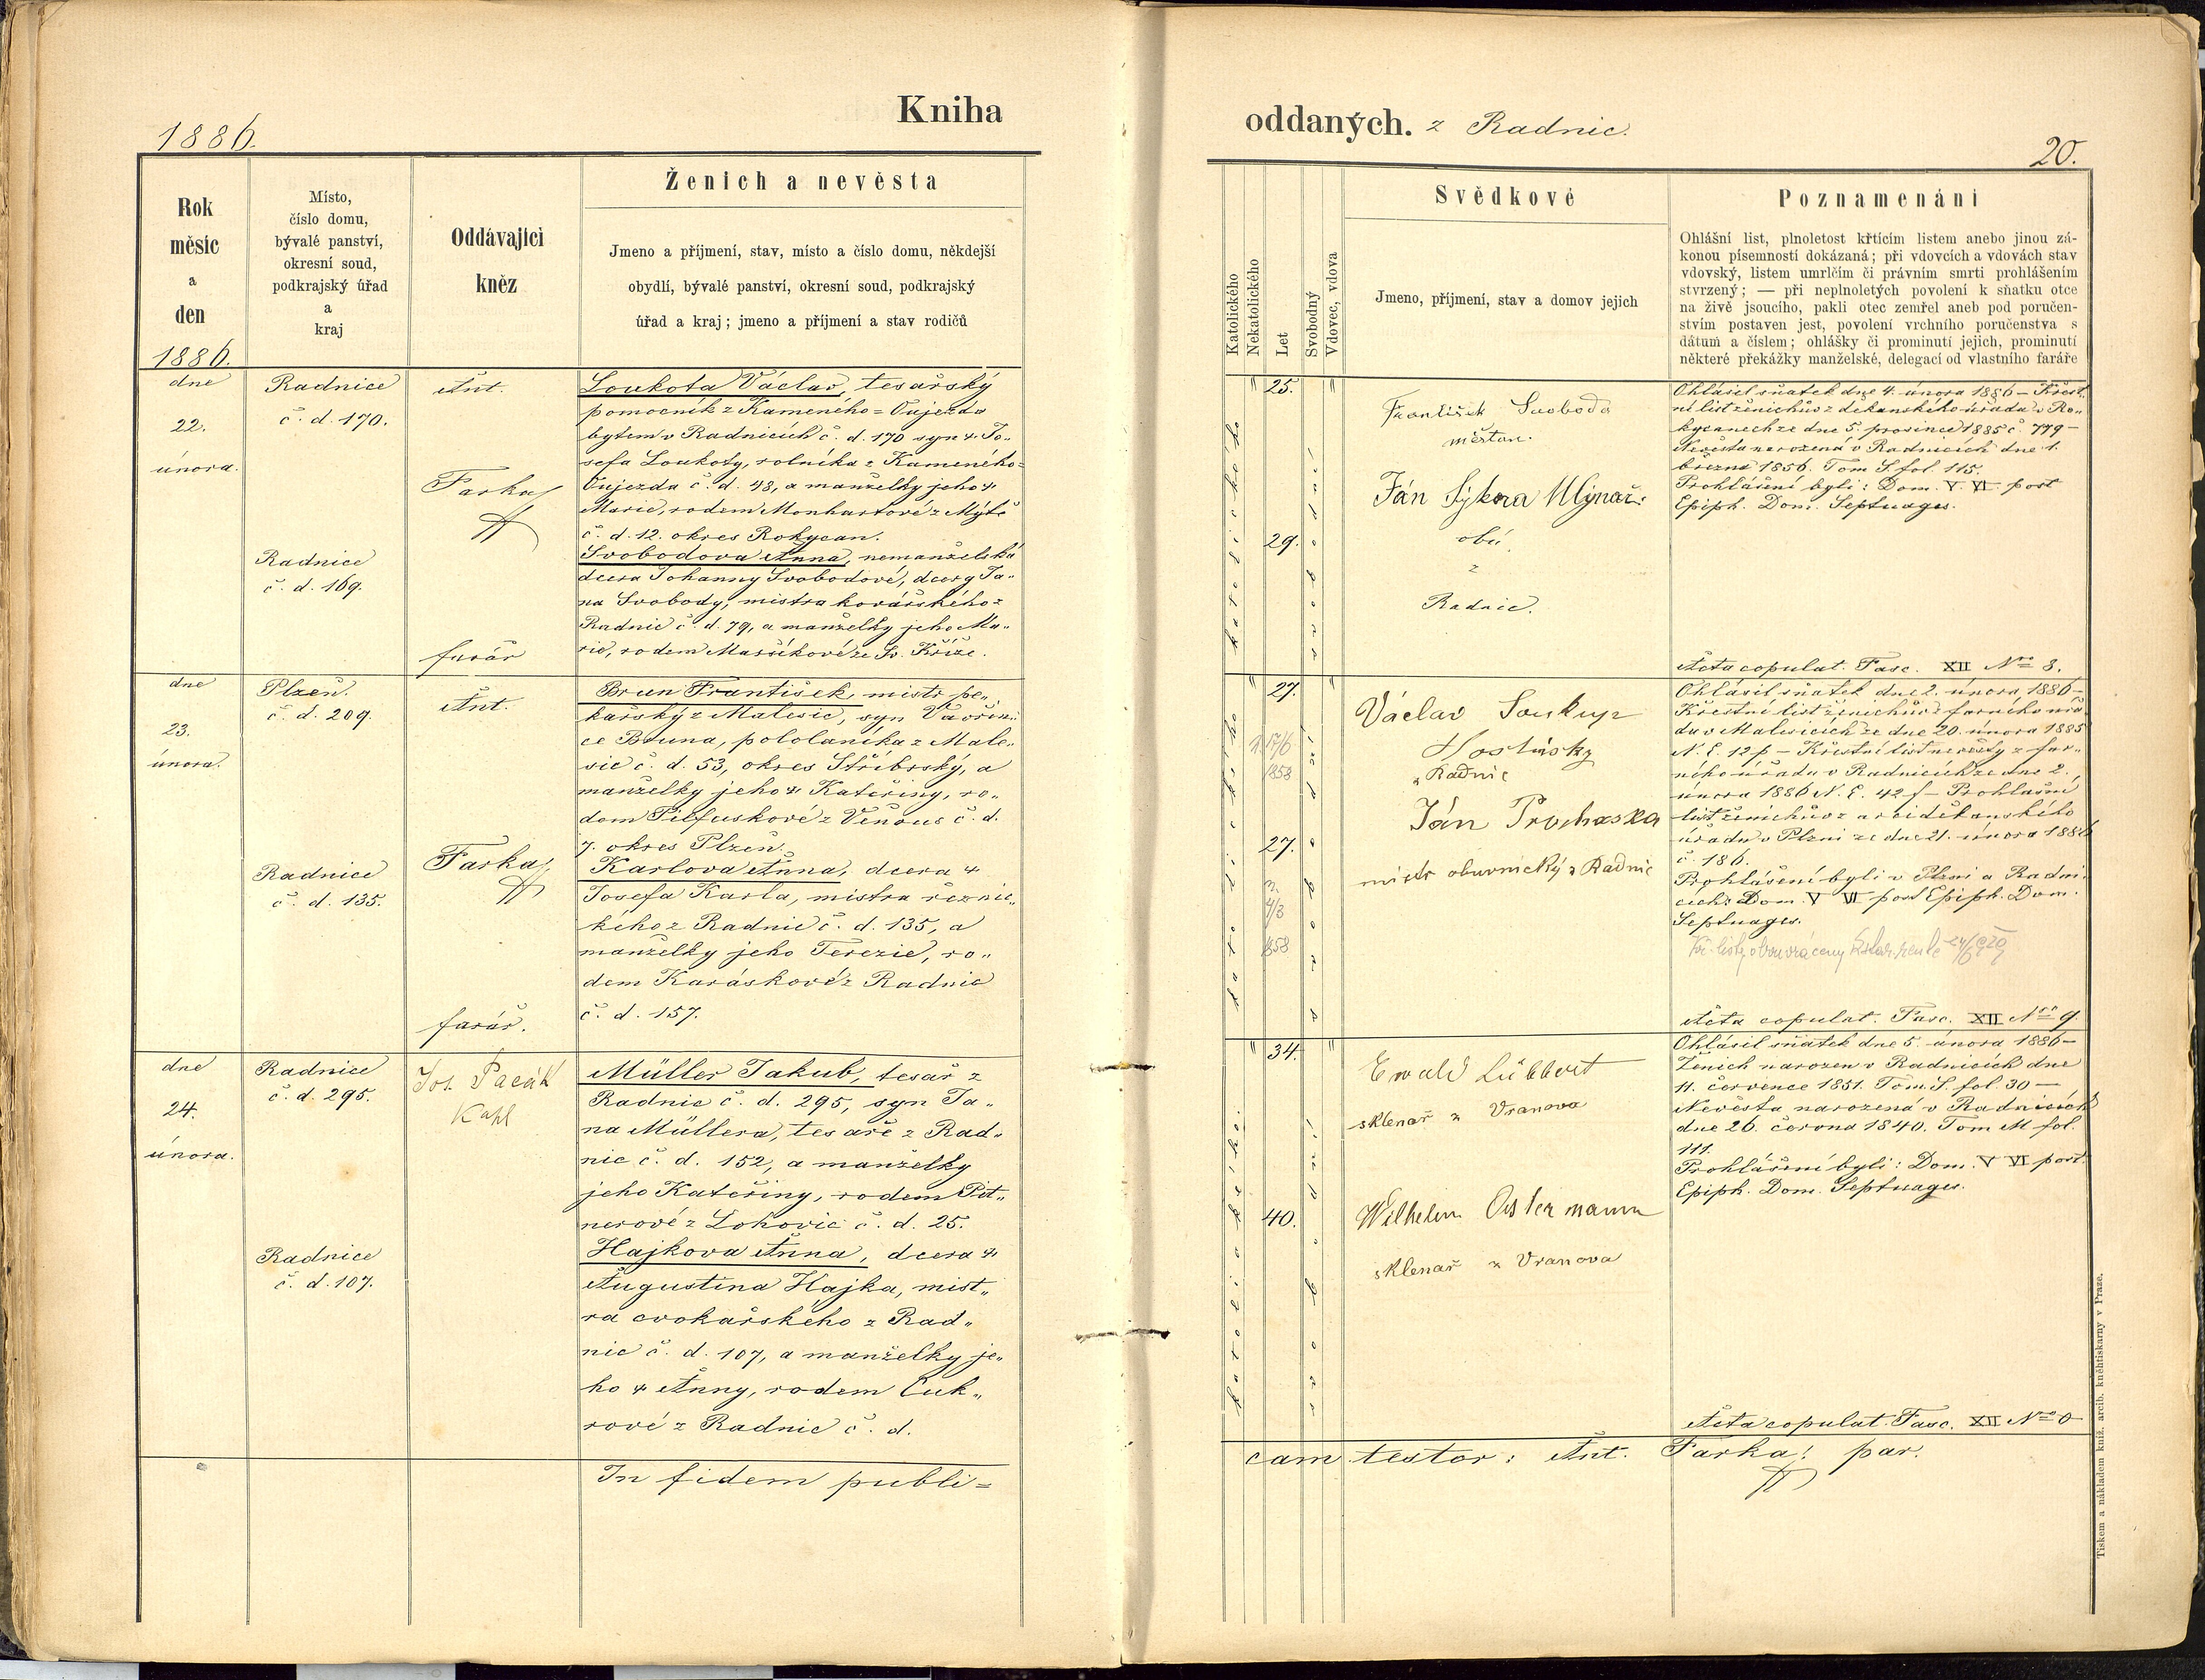 Kniha
1886.
Rok
měsíc
a
den
1886.
Místo,
číslo domu,
bývalé panství,
okresní soud,
podkrajský úřad
a
kraj
Oddávající
kněz
Ženich a nevěsta
Jmeno a příjmení, stav, místo a číslo domu, někdejší
obydlí, bývalé panství, okresní soud, podkrajský
úřad a kraj; jmeno a příjmení a stav rodičů
dne
22.
února.
Radnice
č. d. 170.
Radnice
č. d. 169.
Ant.
Farka
farář
Loukota Václav, tesařský
pomocník z Kameného=Oujezda
bytem v Radnicích č. d. 170 syn † Jo„
sefa Loukoty, rolníka z Kameného=
Oujezda č. d. 48, a manželky jeho †
Marie, rodem Monhartové z Mýta
č. d. 12. okres Rokycan.
Svobodova Anna, nemanželská
dcera Johanny Svobodové, dcery Ja„
na Svobody, mistra kovářského z
Radnic č. d. 79, a manželky jeho Ma„
rie, rodem Maššíkové ze Sv. Kříže.
dne
23.
února.
Plzeň.
č. d. 209.
Radnice
č. d. 135.
Ant.
Farka
farář.
Brun František, mistr pe„
kařský z Malesic, syn Vavřin
ce Bruna, pololaníka z Male„
sic č. d. 53, okres Stříbrský, a
manželky jeho † Kateřiny, ro„
dem č. d.
7. okres Plzeň.
Karlova Anna, dcera †
Josefa Karla, mistra řeznic„
kého z Radnic č. d. 135, a
manželky jeho Terezie, ro„
dem Karáskové z Radnic
č. d. 157.
dne
24.
února.
Radnice
č. d. 295.
Radnice
č. d. 107.
Jos. Pacák
Kapl
Müller Jakub, tesař z
Radnic č. d. 295, syn Ja„
na Müllera, tesaře z Rad„
nic č. d. 152, a manželky
jeho Kateřiny, rodem Pit„
nerové z Lohovic č. d. 25.
Hajkova Anna, dcera †
Augustina Hajka, mist„
ra cvokařského z Rad„
nic č. d. 107, a manželky je„
ho † Anny, rodem Cuk„
rové z Radnic č. d.
In fidem publi=
oddaných. z Radnic.
20.
Katolického
Nekatolického
Let
Svobodný
Vdovec, vdova
Svědkové
Jmeno, příjmení, stav a domov jejich
Poznamenání
Ohlášní list, plnoletost křtícím listem anebo jinou zá-
konou písemností dokázaná; při vdovcích a vdovách stav
vdovský, listem umrlčím či právním smrti prohlášením
stvrzený; — při neplnoletých povolení k sňatku otce
na živě jsoucího, pakli otec zemřel aneb pod poručen-
stvím postaven jest, povolení vrchního poručenstva s
dátum a číslem; ohlášky či prominutí jejich, prominutí
některé překážky manželské, delegací od vlastního faráře
katolického
" 25. "
29.
svobodní
František Svoboda
měšťan.
Ján Sýkora Mlýnář:
obá
z
Radnic.
Ohlásil sňatek dne 4. února 1886 — Křest„
ní list ženichův z děkanského úřadu v Ro„
kycanech ze dne 5. prosince 1885 č. 779 —
Nevěsta narozená v Radnicích dne 1.
března 1856. Tom S. fol. 115.
Prohlášeni byli: Dom. V. VI. post
Epiph. Dom. Septuages.
Acta copulat. Fasc. XII No 8.
katolického
" 27. "
17/6
1858
27.
4/3
1858
svobodní
Václav Soukup
Hostinský
z Radnic
Ján Prochaska
mistr obuvnický z Radnic
Ohlásil sňatek dne 2. února 1886 —
Křestní list ženichův z farního úřa
du v Malesicích ze dne 20. února 1885
N. E. 12 p — Křestní list nevěsty z far„
ního úřadu v Radnicích ze dne 2.
února 1886 N. E. 42 f — Prohlašní
list ženichův z arciděkanského
úřadu v Plzni ze dne 21. února 1886
č. 186.
Prohlášeni byli v Plzni a Radni
cích: Dom. V VI post Epiph. Dom.
Septuages.
Acta copulat. Fasc. XII Nro 9.
katolického.
" 34. "
40.
svobodní
Ewald Lübbert
sklenař z Vranova
Wilhelm Ostermann
sklenař z Vranova
Ohlásil sňatek dne 5. února 1886 —
Ženich narozen v Radnicích dne
11. července 1851. Tom. S. fol. 30 —
Nevěsta narozená v Radnicích
dne 26. června 1840. Tom M fol.
111.
Prohlášeni byli: Dom. V VI post
Epiph. Dom. Septuages.
Acta copulat. Fasc. XII No 0
cam testor: Ant. Farka par.
Tiskem a nákladem kníž. arcib. kněhtiskarny v Praze.